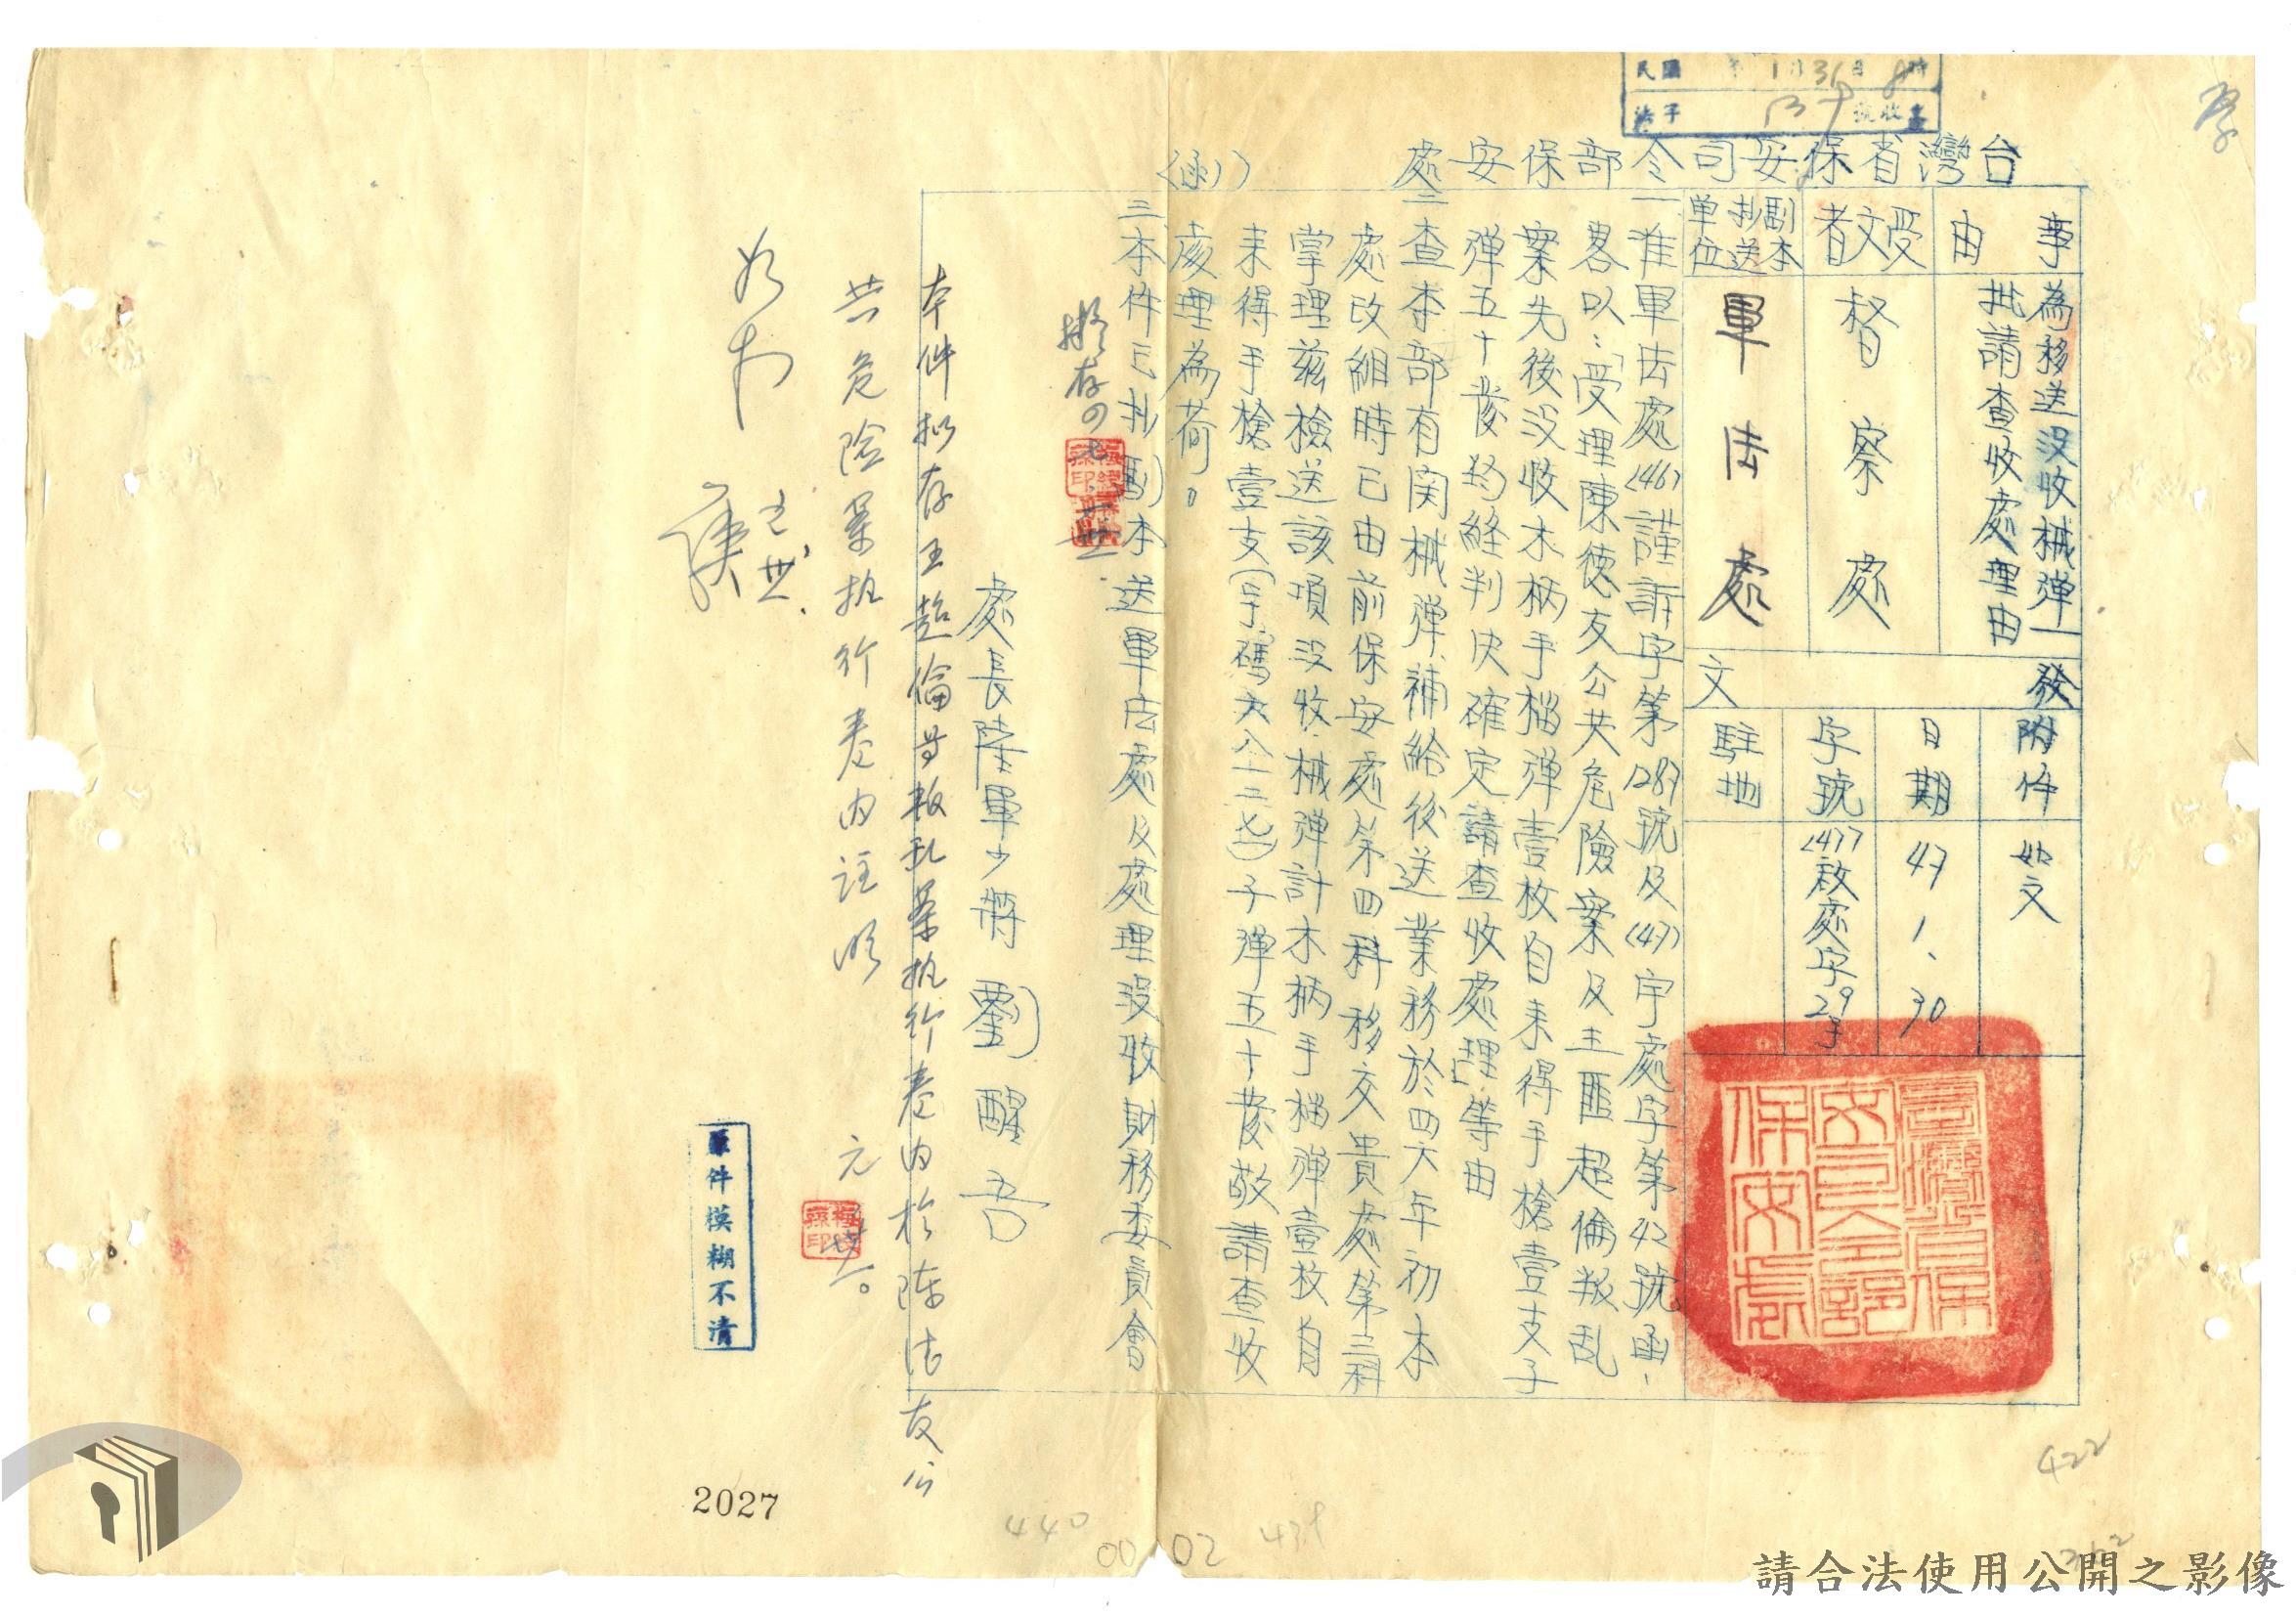 台灣省保安司令部保安處(函)
事由
為移送沒收械彈一
批請查收處理由
受文者
督察處
副本抄送單位
軍法處
發文
附件
如文
日期
47 1、30
字號
(47)啟處字29
駐地
一准軍法處(46)謹訴字第1289號及(47)字處字第42號函、
畧以：「受理陳德友公共危險案及王匪超倫叛乱
案先後沒收木柄手榴彈壹枚自来得手槍壹支子
彈五十發均經判决確定請查收處理」等由
二查本部有関械彈補給後送業務於四六年初本
處改組時已由前保安處第四科移交貴處第三科
掌理茲檢送該項沒收械彈計木柄手榴彈壹枚自
来得手槍壹支(字號碼六八一二七)子彈五十發敬請查收
處理為荷。
三本件已抄副本送軍法處及處理沒收財務委員會
處長陸軍少將劉醒吾
擬存
本件拟存王超倫等叛乱案执行卷内於陈德友公
共危险案执行卷内註明
如拟
民國 年1月31日 時
法字 號收
臺灣省保安司令部保安處
原件模糊不清
2027
440
00 02
439
422
請合法使用公開之影像